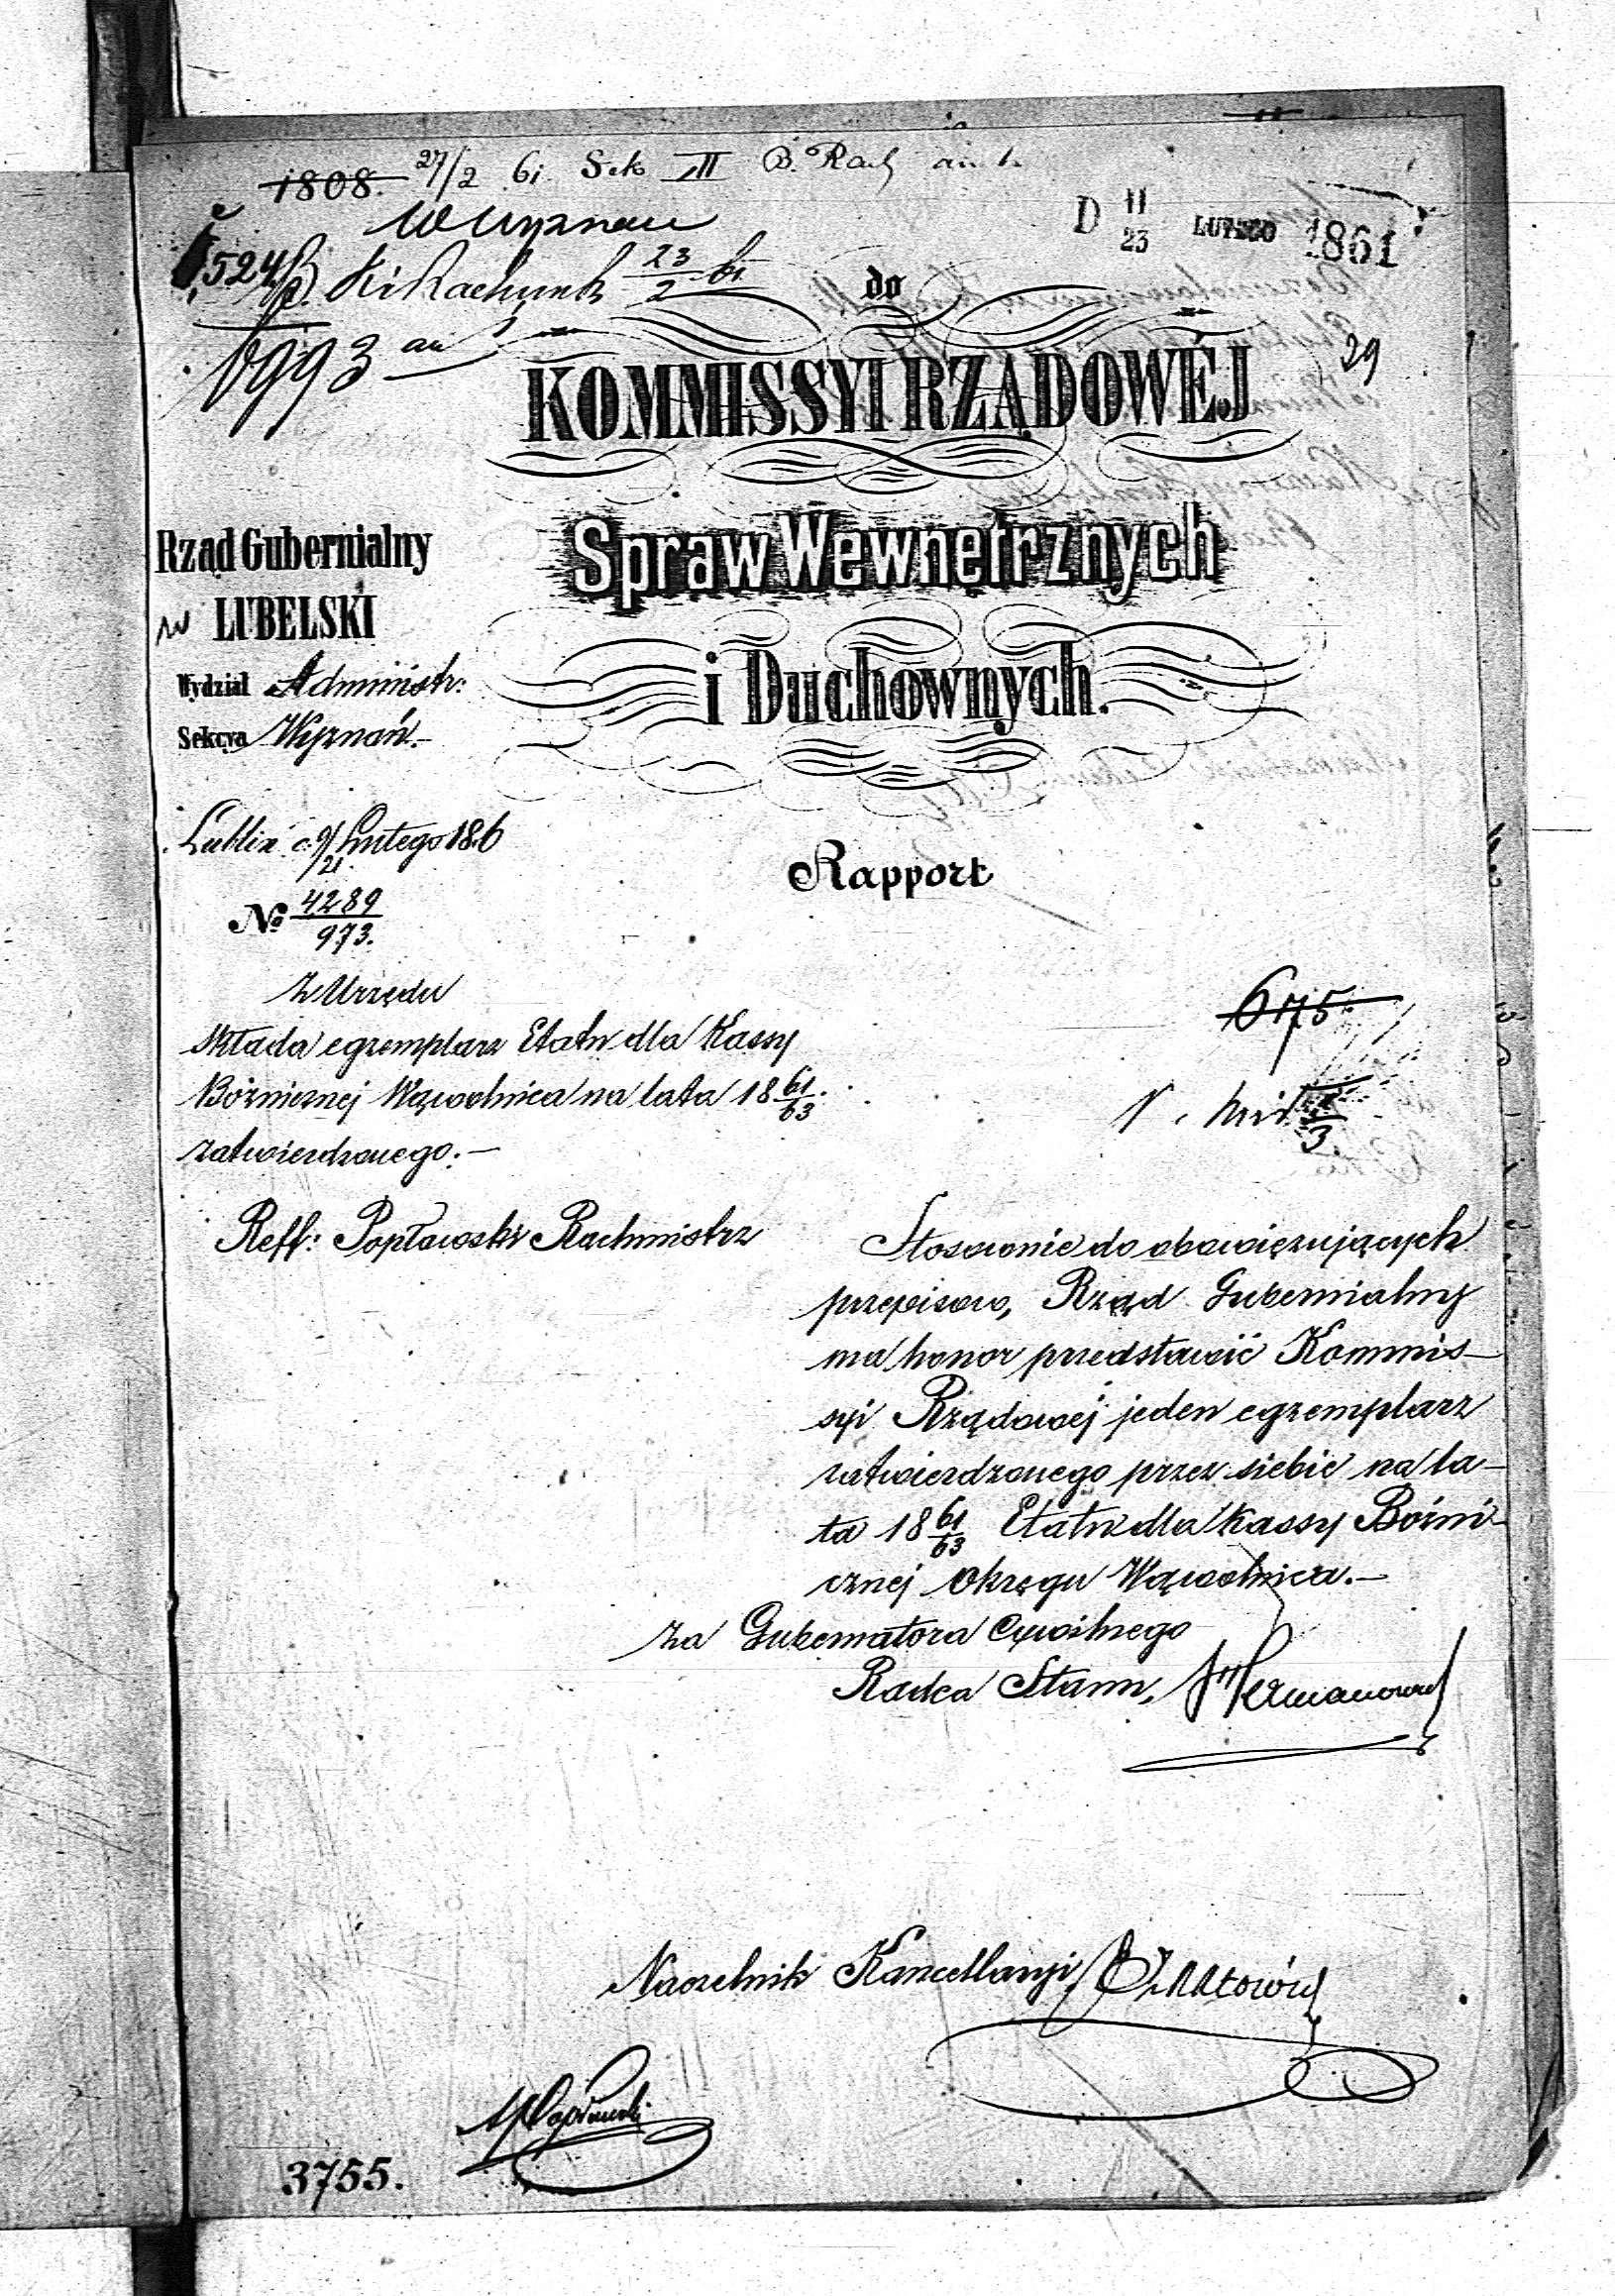 1808. 27/2 61. Sek III B. Rach
W Wyznań
524/ Ki Rachunk 23/2 61
6993
D 11/23 LUTEGO 1861
29
do
KOMMISSYI RZĄDOWÉJ
Spraw Wewnętrznych
i Duchownych.
Rząd Gubernialny
w LUBELSKI
Wydział Administr:
Sekcya Wyznań.
Lublin d. 9/21 Lutego 186
Rapport
No 4289/973.
Z Urzędu
składa egzemplarz Etatu dla Kassy
Bóżnicznej Wąwolnica na lata 18 61/63.
zatwierdzonego.—
675
Reff: Popławski Rachmistrz
Stosownie do obowięzujących
przepisow, Rząd Gubernialny
ma honor przedstawić Kommis-
syi Rządowej jeden egzemplarz
zatwierdzonego przez siebie na la-
ta 18 61/63 Etatu dla Kassy Bóżni-
cznej Okręgu Wąwolnica.—
Za Gubernatora Cywilnego
Radca Stanu,
Naczelnik Kancellaryi
3755.